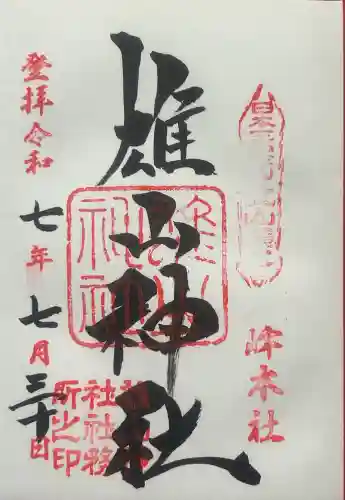 峰本社
雄山神社
雄山神社
社社務
所之印
登拝令和
七年
七月
三十日